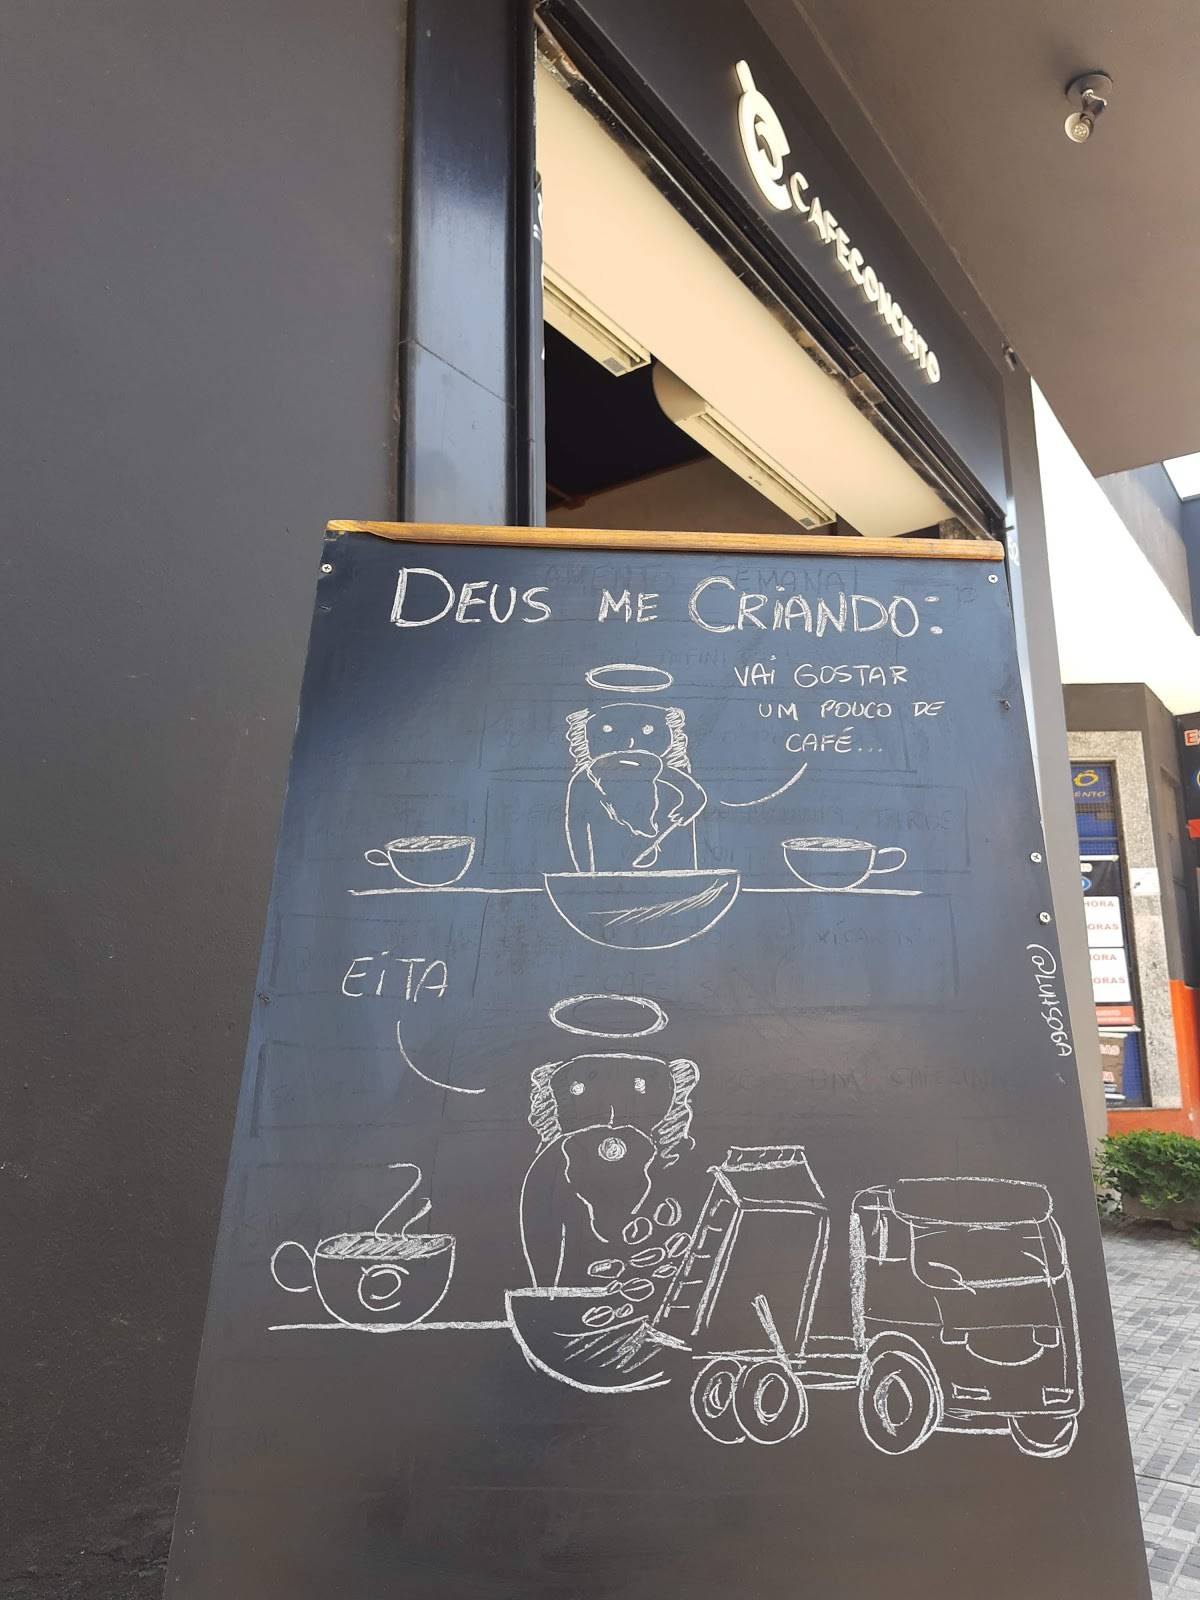 CAFECONCEITO
DEUS ME CRIANDO:
VAI GOSTAR
UM POUCO DE
CAFÉ...
EITA
HORA
ORAS
ORA
ORAS